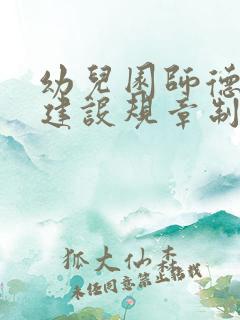 幼兒園師德
建設規章制
狐大仙森
未经同意禁止搬载